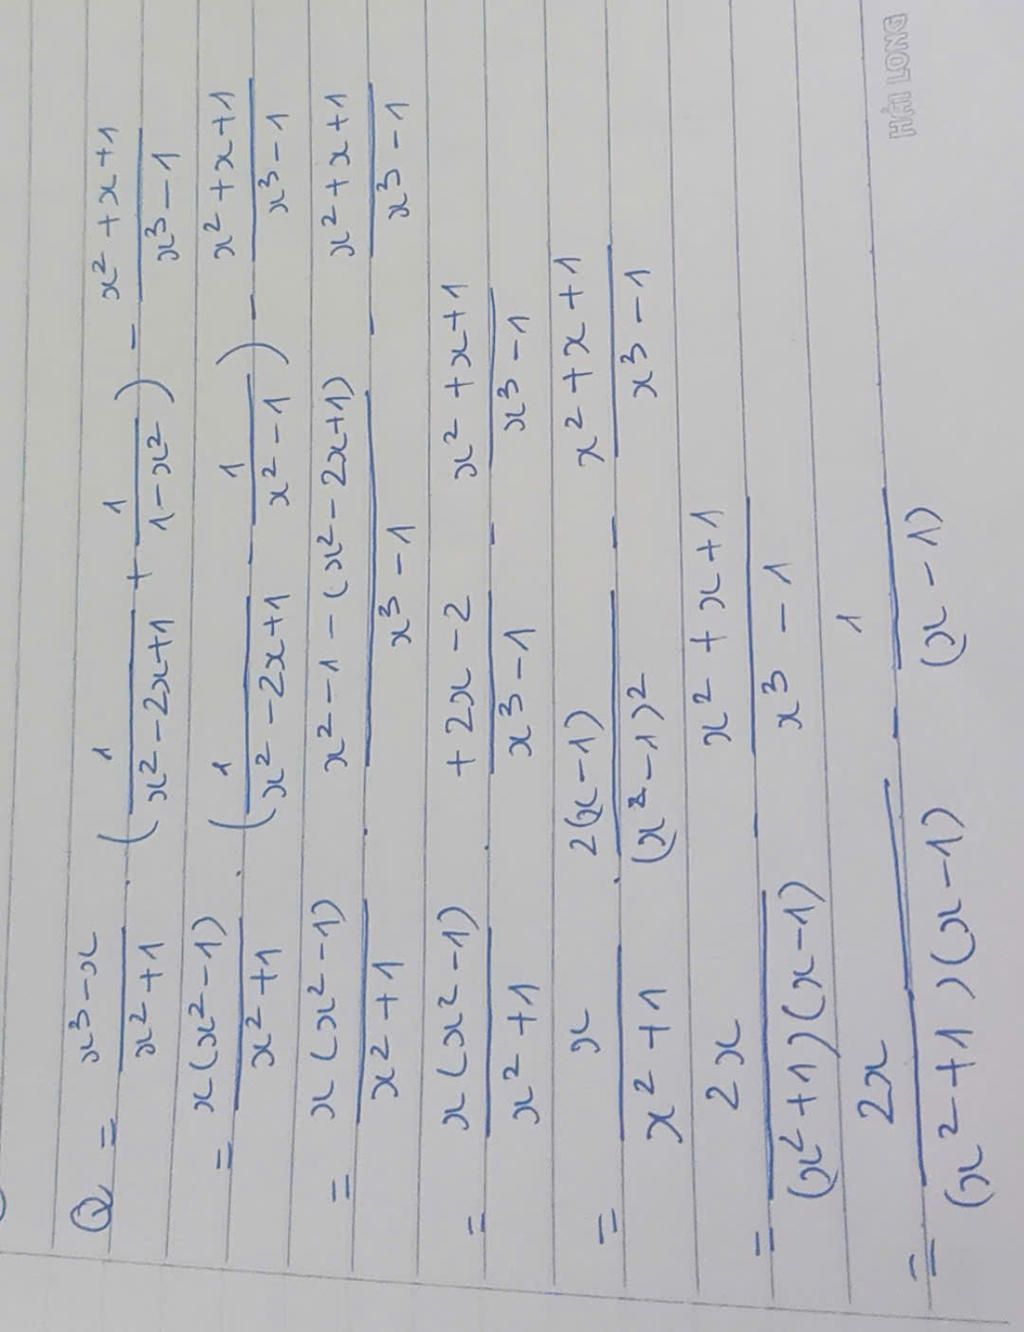 Q = \frac{x^3-x}{x^2+1} . ( \frac{1}{x^2-2x+1} + \frac{1}{1-x^2} ) - \frac{x^2+x+1}{x^3-1}
= \frac{x(x^2-1)}{x^2+1} . ( \frac{1}{x^2-2x+1} - \frac{1}{x^2-1} ) - \frac{x^2+x+1}{x^3-1}
= \frac{x(x^2-1)}{x^2+1} . \frac{x^2-1-(x^2-2x+1)}{x^3-1} - \frac{x^2+x+1}{x^3-1}
= \frac{x(x^2-1)}{x^2+1} . \frac{+2x-2}{x^3-1} - \frac{x^2+x+1}{x^3-1}
= \frac{x}{x^2+1} . \frac{2(x-1)}{(x^2-1)^2} - \frac{x^2+x+1}{x^3-1}
= \frac{2x}{(x^2+1)(x-1)} - \frac{x^2+x+1}{x^3-1}
= \frac{2x}{(x^2+1)(x-1)} - \frac{1}{(x-1)}
HẢI LONG